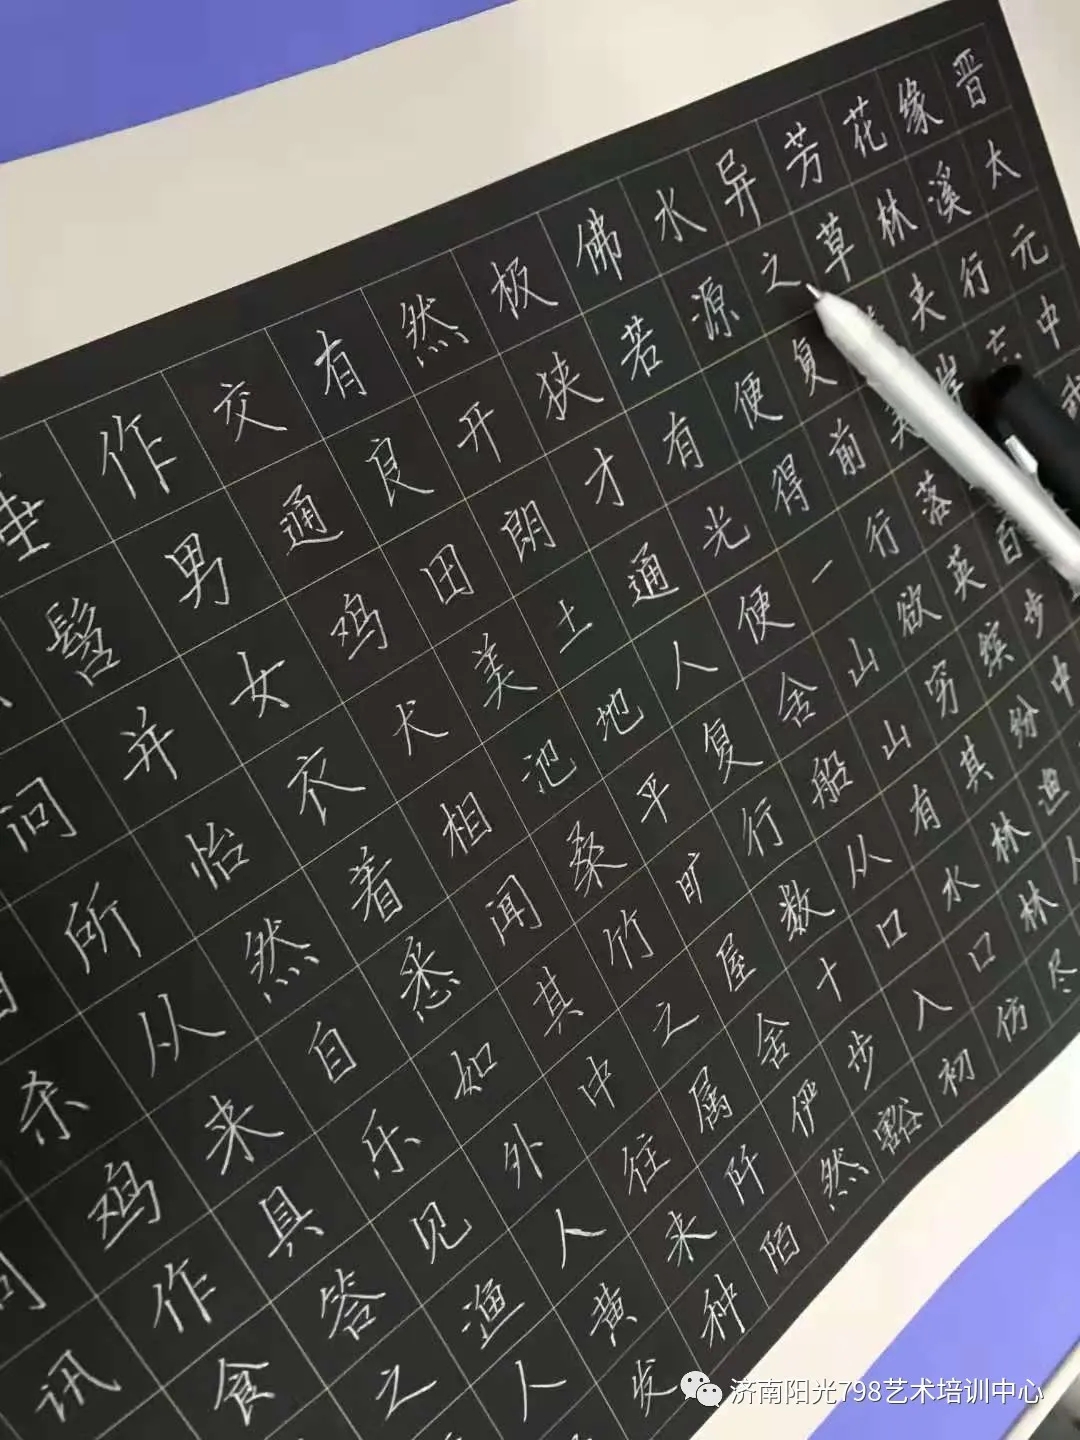 晋太元中武
缘溪行忘
花林夹岸百步中
芳草美落英缤纷渔人
异之复前行欲穷其林林尽
水源便得一山山有水口仿
佛若有光便舍船从口入初
极狭才通人复行数十步豁
然开朗土地平旷屋舍俨然
有良田美池桑竹之属阡陌
交通鸡犬相闻其中往来种
作男女衣着悉如外人黄发
垂髫并怡然自乐见渔人
问所从来具答之
杀鸡作食
问讯
济南阳光798艺术培训中心